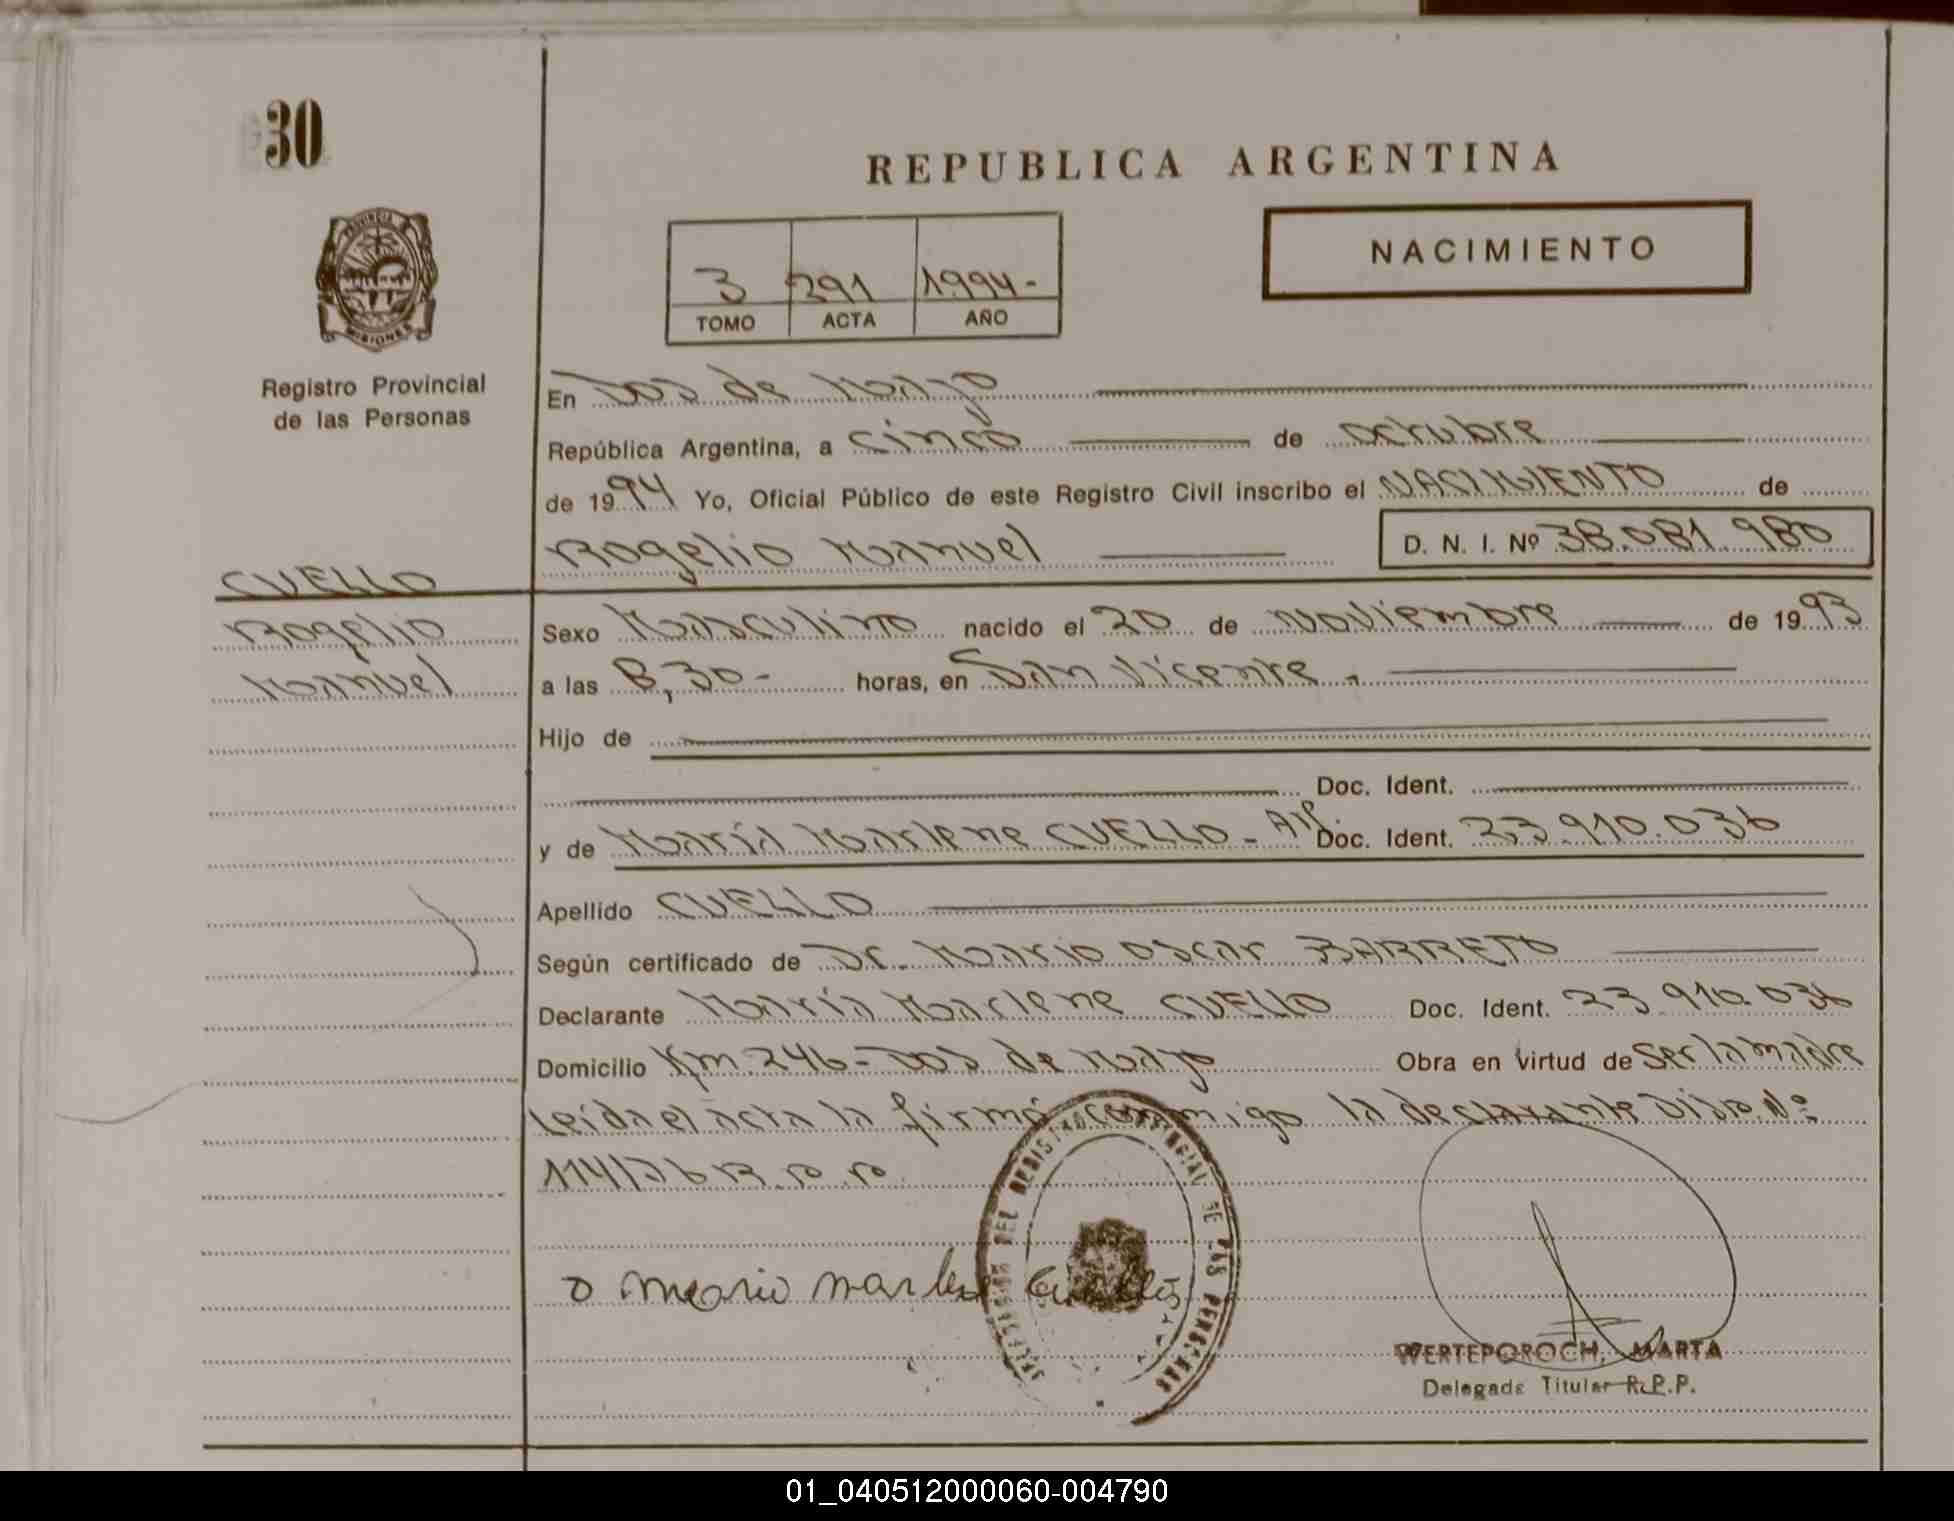 30
REPUBLICA ARGENTINA
NACIMIENTO
3 291 1994-
TOMO ACTA AÑO
PROVINCIA
MISIONES
Registro Provincial
de las Personas
En Dos de Mayo
República Argentina, a cinco de octubre
de 1994 Yo, Oficial Público de este Registro Civil inscribo el NACIMIENTO de
Rogelio Manuel D. N. I. Nº 38.081.980
CUELLO
Rogelio
Manuel
Sexo Masculino nacido el 20 de noviembre de 1993
a las 8,30- horas, en San Vicente.
Hijo de
Doc. Ident.
y de María Marlene CUELLO - Doc. Ident. 23.910.036
Apellido CUELLO
Según certificado de Dr. Mario Oscar BARRETO
Declarante María Marlene CUELLO Doc. Ident. 23.910.036
Domicilio Km. 246 - Dos de Mayo Obra en virtud de ser la madre
Leída el acta la firma conmigo la declarante Disp. Nº
114/76 R.P.P.
Mario Marlene Cuello
WERTEPOROCH, MARTA
Delegada Titular R.P.P.
01_040512000060-004790